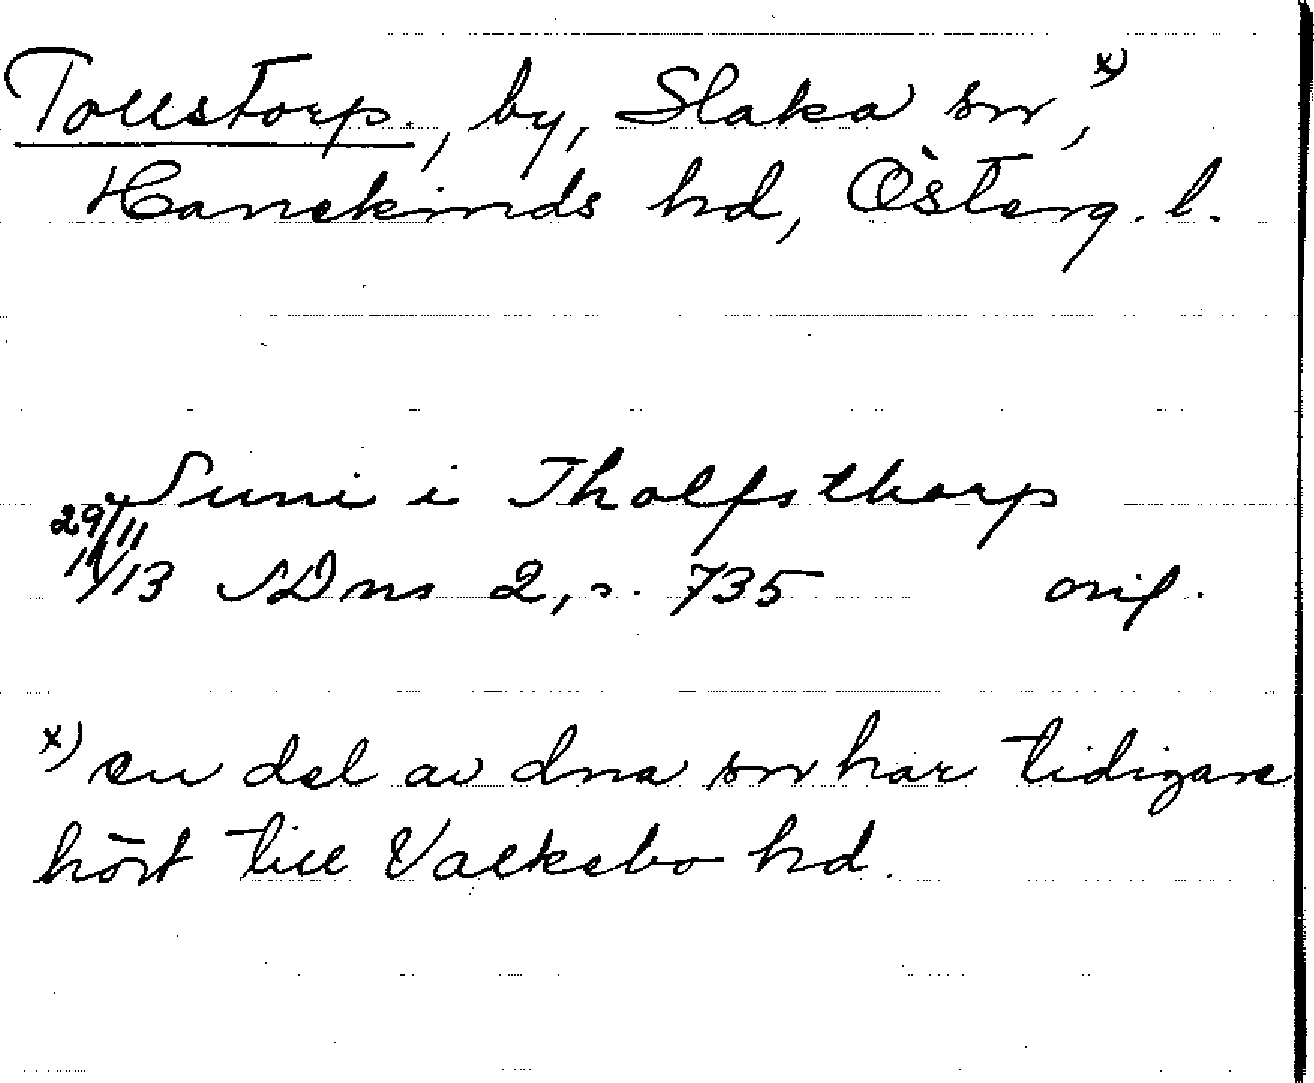 Tollstorp, by, Slaka sn,x)
Hanekinds hd, Österg. l.
Suni i Tholfsthorp
29/11
14/13 SDns 2, s. 735 orig.
x) en del av dna sn har tidigare
hört till Valkebo hd.